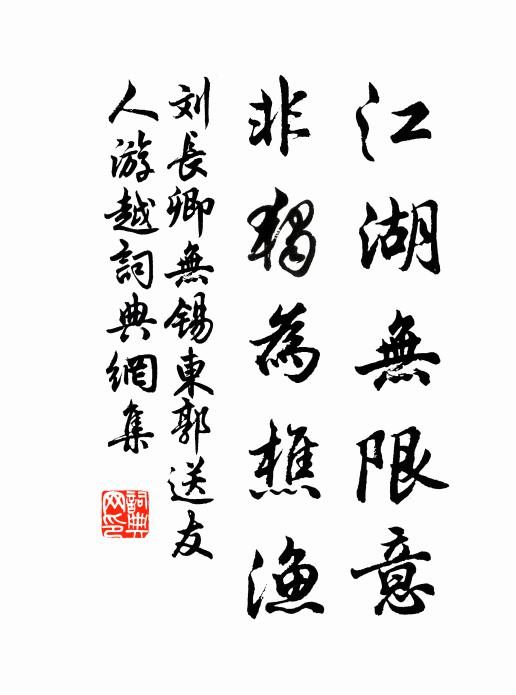 江湖無限意
非獨為樵漁
刘長卿無锡東郭送友
人游越詞典網集
詞典网印